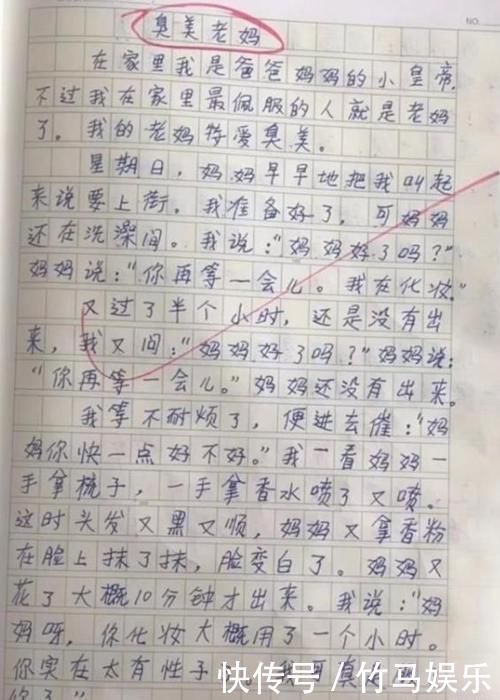 NO.
臭美老妈
在家里我是爸爸妈妈的小皇帝,
不过我在家里最佩服的人就是老妈
了。我的老妈特爱臭美。
星期日,妈妈早早地把我叫起
来说要上街。我准备好了,可妈妈
还在洗澡间。我说:“妈妈好了吗?”
妈妈说:“你再等一会儿。我在化妆。”
又过了半个小时,还是没有出
来,我又问:“妈妈好了吗?”妈妈说:
“你再等一会儿。”妈妈还没有出来。
我等不耐烦了,便进去催:“妈
妈你快一点好不好。”我一看妈妈一
手拿梳子,一手拿香水喷了又喷。
这时头发又黑又顺,妈妈又拿香粉
在脸上抹了抹,脸变白了。妈妈又
花了大概10分钟才出来。我说:“妈
妈呀,你化妆大概用了一个小时。
你实在太有性子
快传号/竹马娱乐